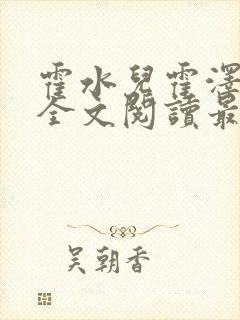 霍水兒霍澤
全文閱讀最
吳朝香